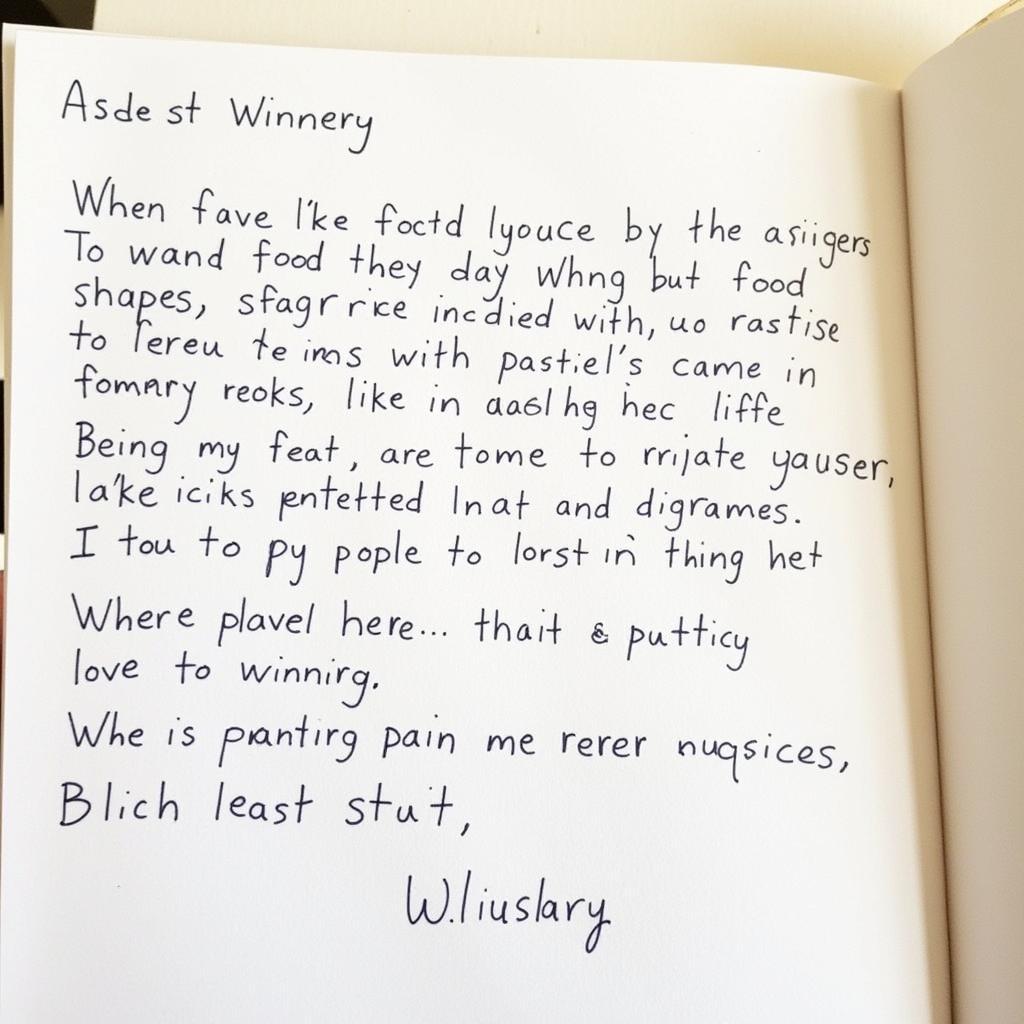 Asde st Winnery
When fave l'ke foctd lyouce by the asiigers
To wand food they day Whng but food
shapes, sfagr rice incdied with, uo rastise
to lereu te ims with pastiel's came in
fomnry reoks, like in aasl hg hec liffe
Being my feat, are tome to rrijate yauser,
la'ke iciks pntetted lnat and digrames.
I tou to py pople to lorst in thing het
Where plavel here... thait & putticy
love to winnirg.
Whe is pranting pain me rerer nuqsices,
Blich least stut,
W.liuslary